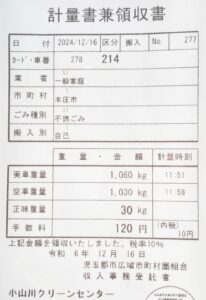 計量書兼領収書
日付 2024/12/16 区分 搬入 No. 277
カード・車番 278 214
業者 一般家庭
市町村 本庄市
ごみ種別 不燃ごみ
搬入別 自己
重量・金額 計量時刻
実車重量 1,060 kg 11:51
空車重量 1,030 kg 11:58
正味重量 30 kg
手数料 120 円 (内税) 10円
上記金額を領収いたしました。税率10%
令和 6年 12月 16日
児玉郡市広域市町村圏組合
収入事務受託者
小山川クリーンセンター